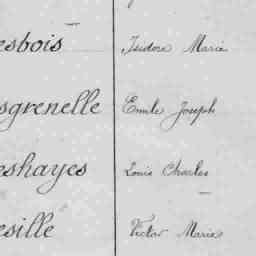 esbois Isidore Marie
sgrenelle Emile Joseph
eshayes Louis Charles
esille Victor Marie